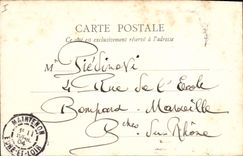 CARTE POSTALE
Ce côté est exclusivement réservé à l'adresse
M
4 Rue de l'Ecole
Bompard - Marseille
Bches du Rhône
MAINTENON
04
EURE-ET-LOIR